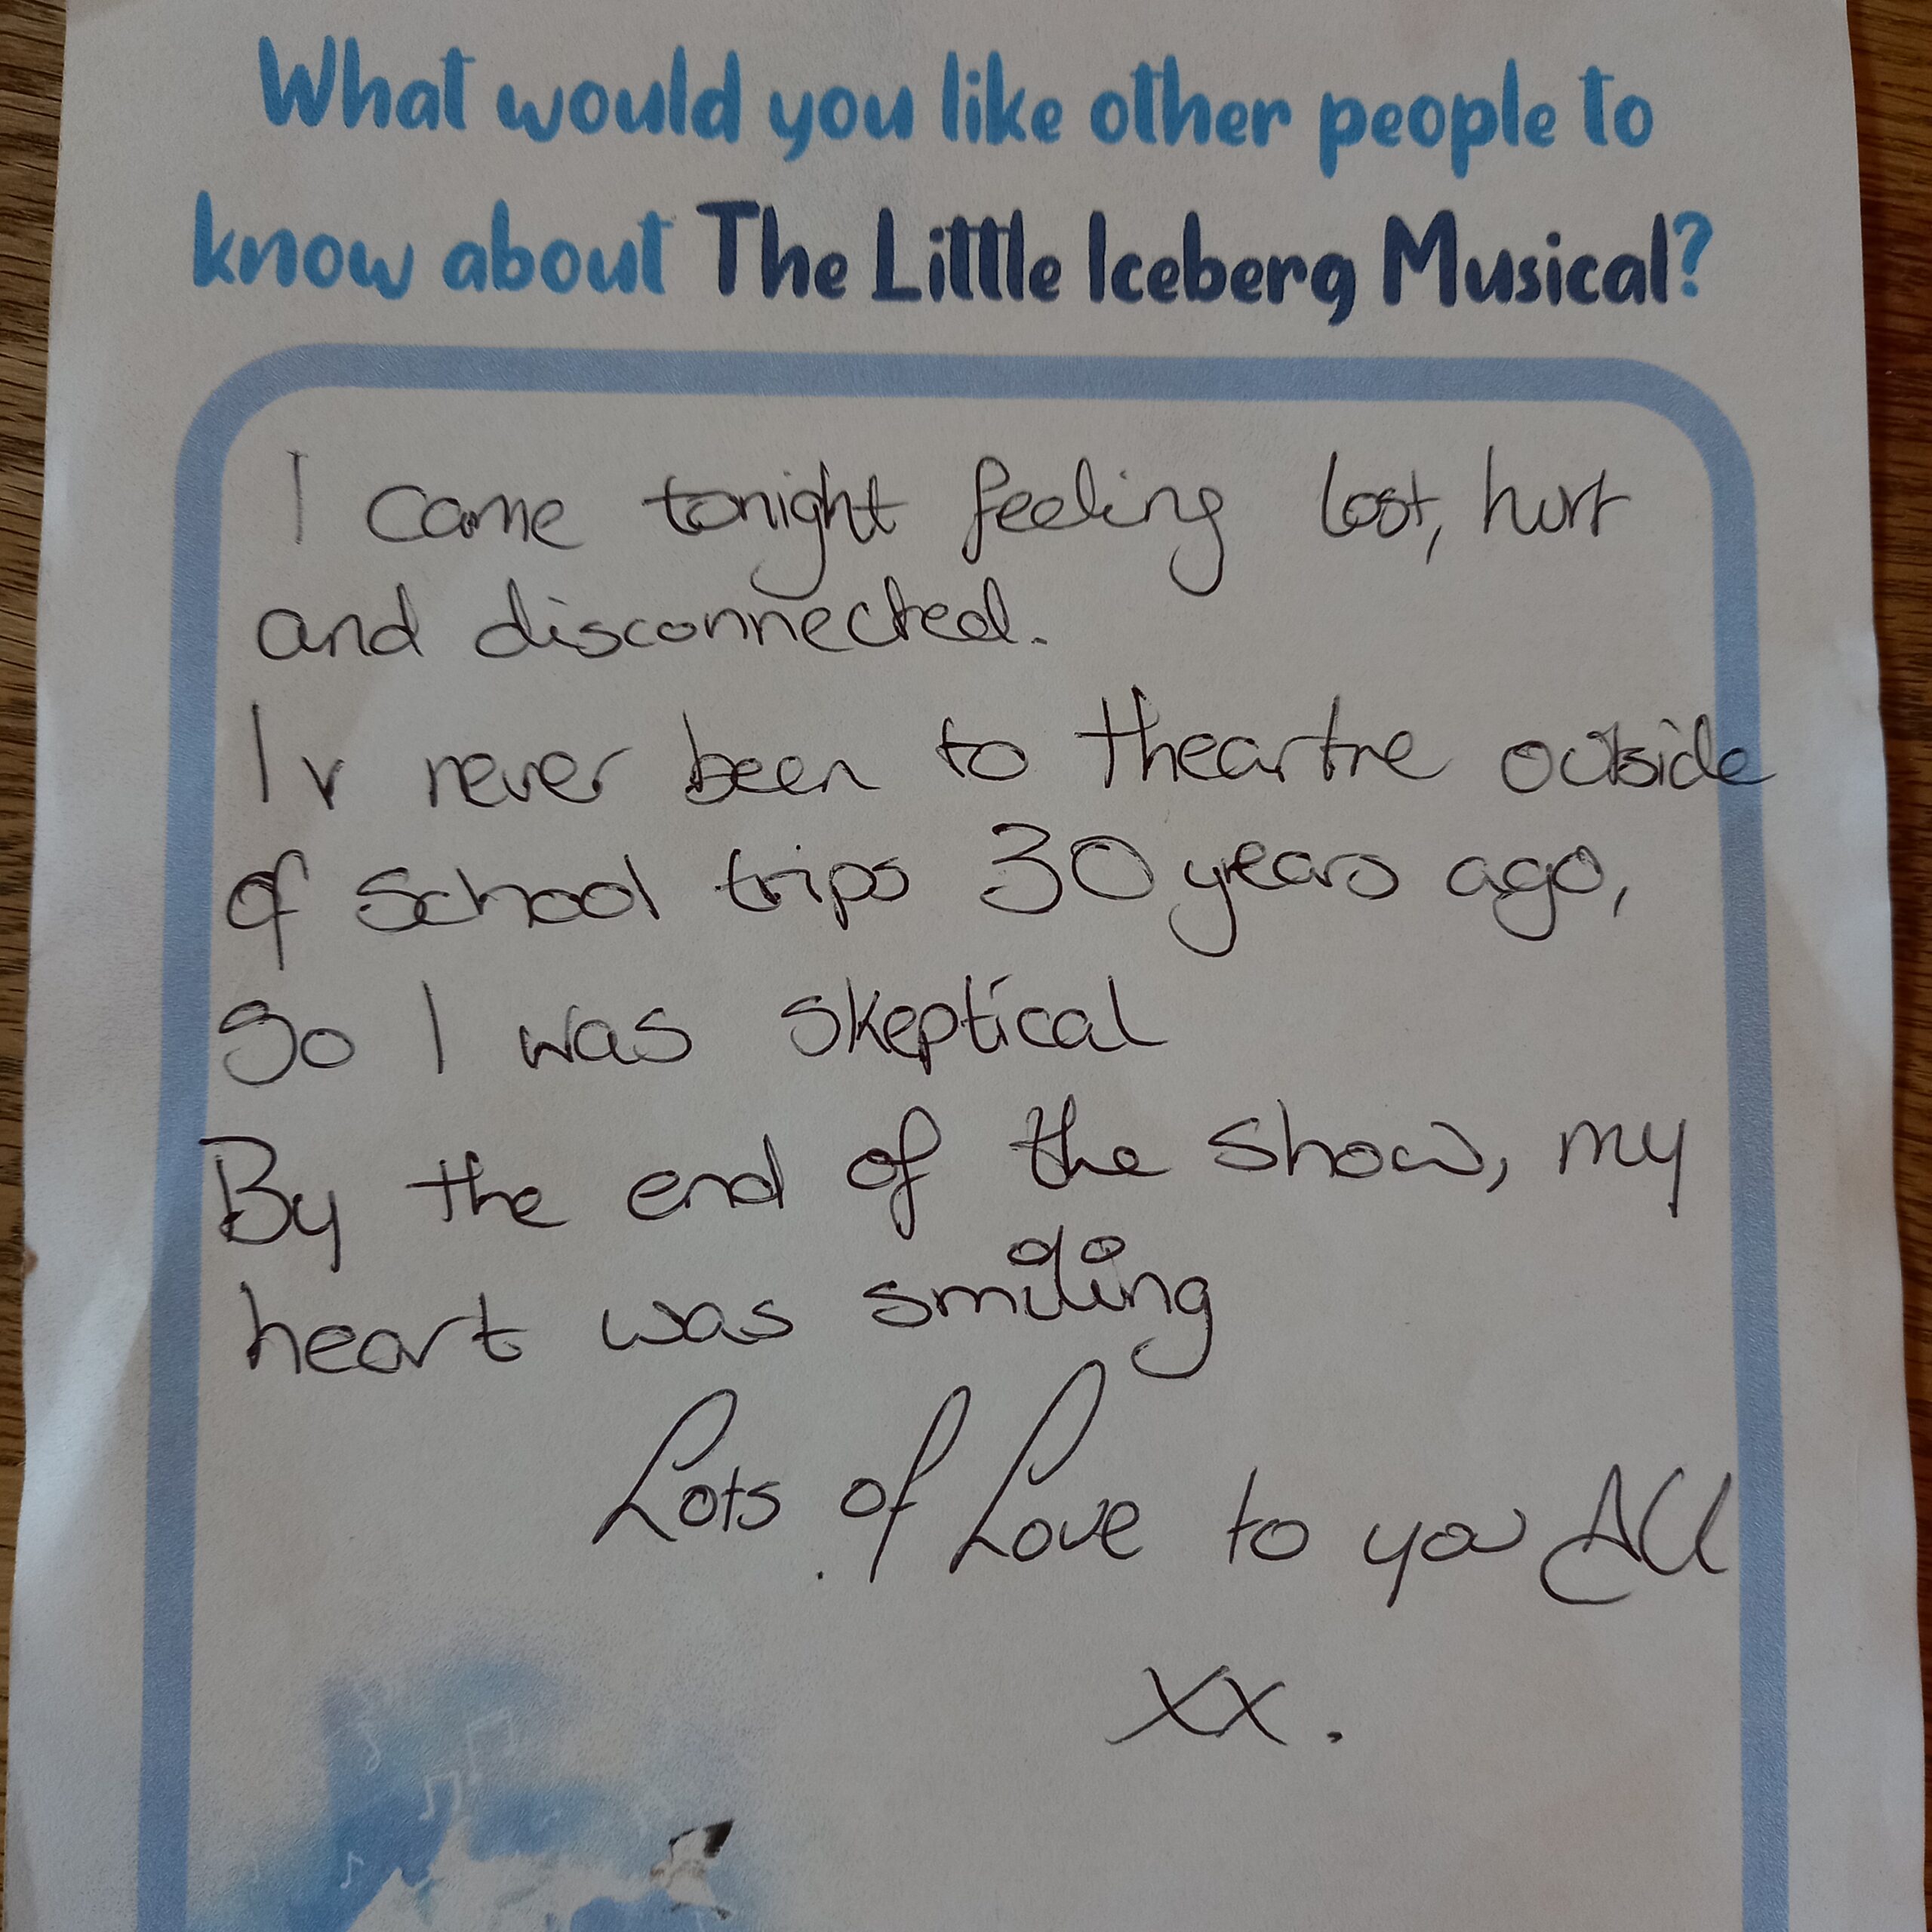 What would you like other people to
know about The Little Iceberg Musical?
I came tonight feeling lost, hurt
and disconnected.
Iv never been to theartre outside
of school trips 30 years ago,
So I was skeptical
By the end of the show, my
heart was smiling
Lots of Love to you All
xx.